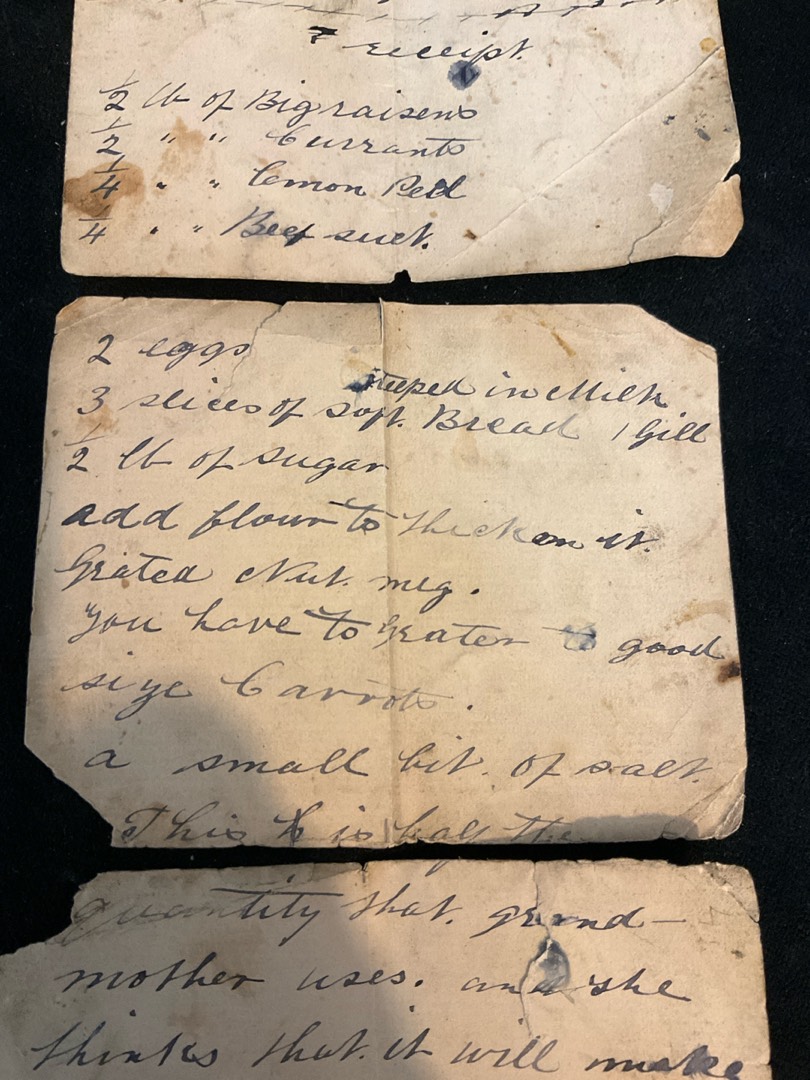 receipt.
1/2 lb of Big raisens
1/2 " " Currants
1/4 " " lemon Peel
1/4 " " Beef suet.
2 eggs
steeped in Milk
3 slices of soft. Bread 1 Gill
1/2 lb of sugar
add flour to thicken it.
Grated Nut. meg.
You have to Grater good
size Carrots.
a small bit. of salt.
This is half the
quantity that. grand-
mother uses. and she
thinks that. it will make